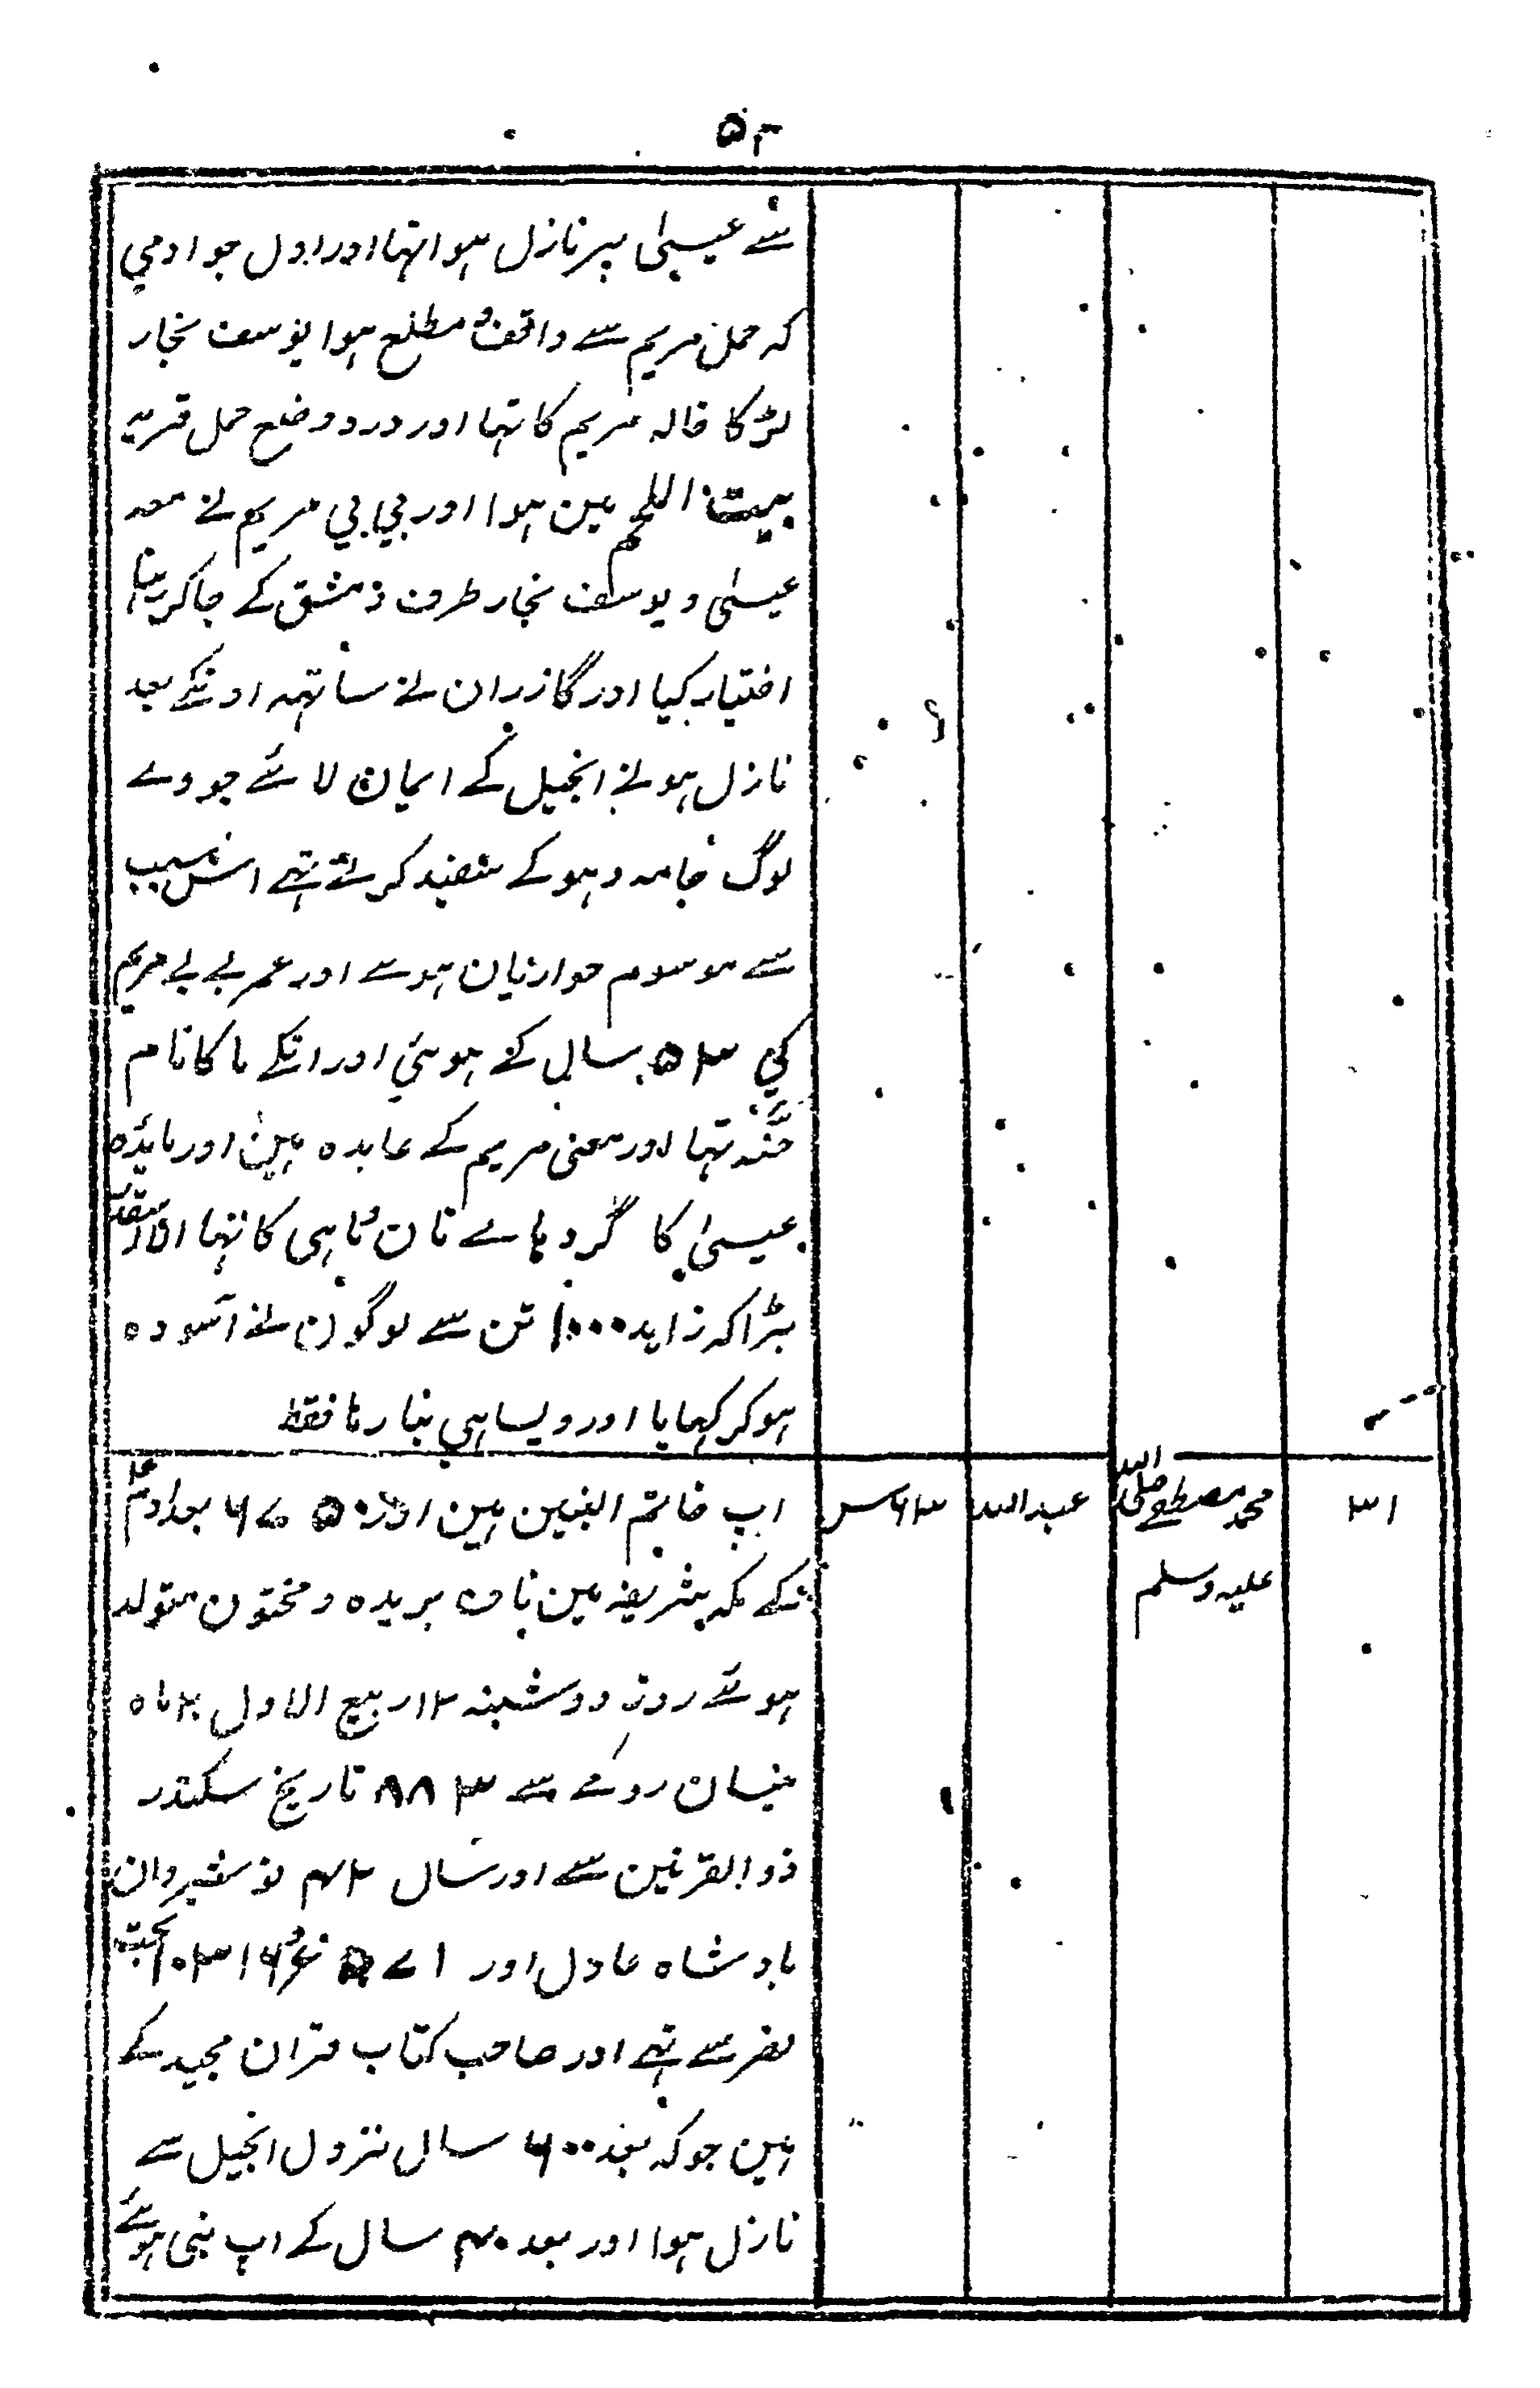 ۵۳
نے عیسیٰ پر نازل ہوا تہا اور اول جو ادمی
کہ حمل مریم سے واقف و مطلع ہوا یوسف نجار
لڑکا خالہ مریم کا تہا اور درد و وضع حمل قریہ
بیت اللحم مین ہوا اور بی بی مریم نے معہ
عیسیٰ و یوسف نجار طرف دمشق کے جاکر رہنا
اختیار کیا اور گازران نے ساتہہ اونکے بعد
نازل ہونے انجیل کے ایمان لائے جو وے
لوگ جامہ دہو کے سفید کرتے تہے اس سبب
سے موسوم حواریان ہوے اور عمر بی بی مریم
کی ۵۳ سال کے ہوئی اور انکے ما کا نام
حنّہ تہا اور معنی مریم کے عابدہ ہین اور مایدہ
عیسیٰ کا گردہاے نان و ماہی کا تہا اور اسقدر
بڑا کہ زاید ۱۰۰۰ تن سے لوگون نے آسودہ
ہوکر کہایا اور ویسا ہی بنا رہا فقط
۳۱ محمد مصطفے صلی اللہ عبداللہ ۶۳س اپ خاتم النبین ہین اور ۶۷۵۰ بعد ادم ع
علیہ وسلم کے مکہ شریف مین ناف بریدہ و مختون متولد
ہوئے روز دوشنبہ ۱۲ ربیع الاول ۲۰ ماہ
نیسان رومے سے ۸۸۳ تاریخ سکندر
ذو القرنین سے اور سال ۴۲ نوشیروان
بادشاہ عادل اور ۵۷۱ع و ۱۳۱۶ بخت
نصر سے تہے اور صاحب کتاب قران مجید کے
ہین جو کہ بعد ۶۰۰ سال نزول انجیل سے
نازل ہوا اور بعد ۴۰ سال کے اپ نبی ہوئے